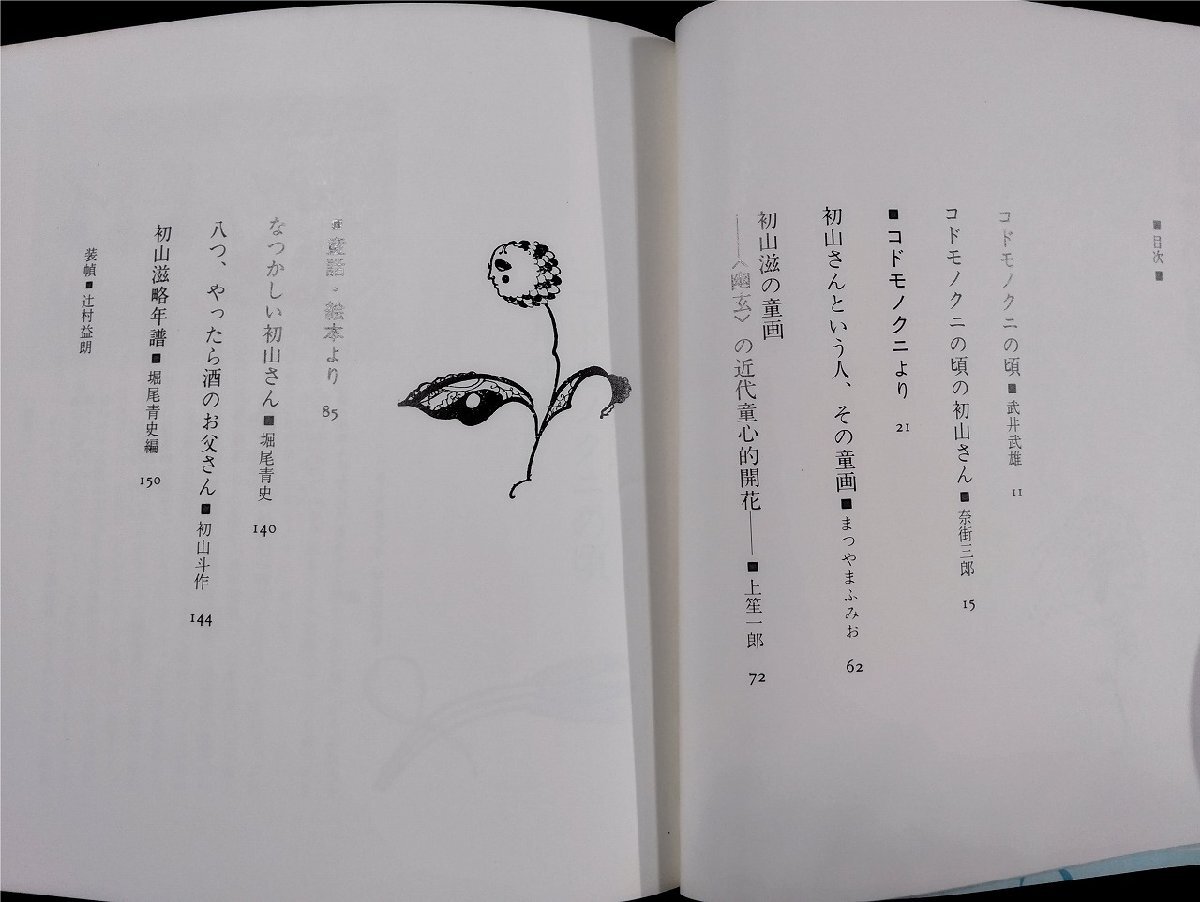 ■目次■
コドモノクニの頃■武井武雄 11
コドモノクニの頃の初山さん■奈街三郎 15
■コドモノクニより 21
初山さんという人、その童画■まつやまふみお 62
初山滋の童画
――〈幽玄〉の近代童心的開花――■上笙一郎 72
■童話・絵本より 85
なつかしい初山さん■堀尾青史 140
八つ、やったら酒のお父さん■初山斗作 144
初山滋略年譜■堀尾青史編 150
装幀■辻村益朗